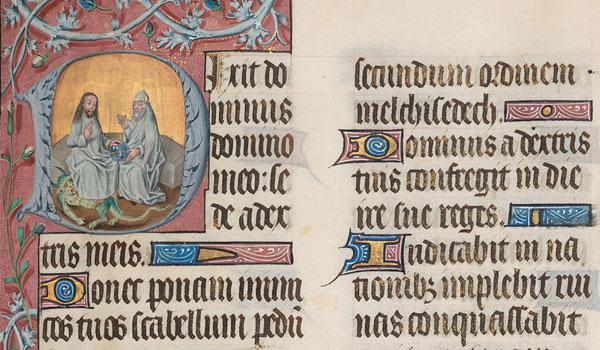 Dixit do
minus
domino
meo: se
de a dex
tris meis.
Donec ponam inimi
cos tuos scabellum pedū
secundum ordinem
melchisedech.
Dominus a dextris
tuis confregit in die
ire sue reges.
Iudicabit in na
tionibꝫ implebit rui
nas conquassabit